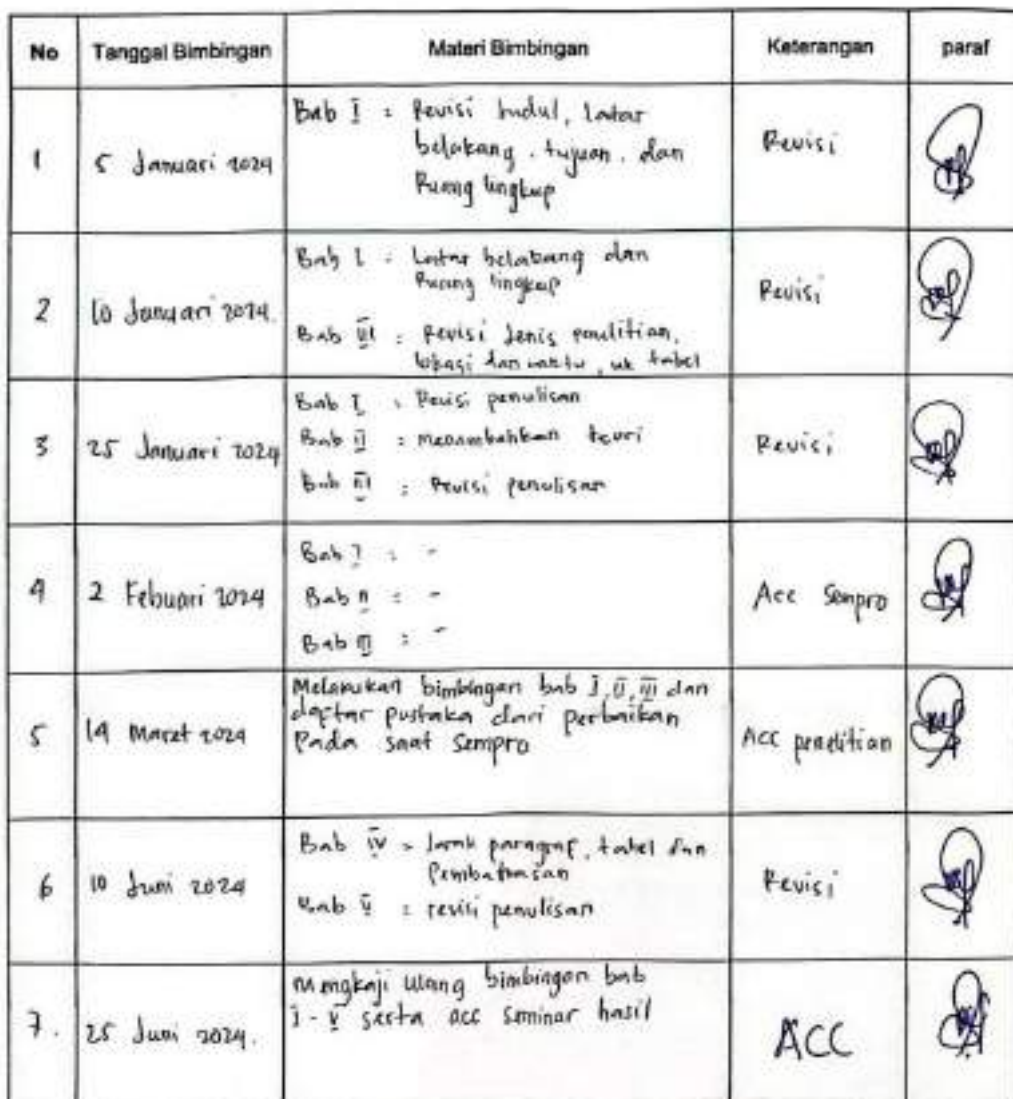 No Tanggal Bimbingan Materi Bimbingan Keterangan paraf
1 5 Januari 2024 Bab I : Revisi Judul, Latar Revisi
belakang, tujuan, dan
Ruang lingkup
2 10 Januari 2024. Bab I : Latar belakang dan Revisi
Ruang lingkup
Bab III : Revisi Jenis penelitian,
lokasi dan waktu, uk tabel
3 25 Januari 2024 Bab I : Revisi penulisan Revisi
Bab II : menambahkan teori
Bab III : Revisi penulisan
4 2 Febuari 2024 Bab I : - Acc Sempro
Bab II : -
Bab III : -
5 14 Maret 2024 Melakukan bimbingan bab I, II, III dan ACC penelitian
daftar pustaka dari perbaikan
Pada saat Sempro
6 10 Juni 2024 Bab IV = Jarak paragraf, tabel dan Revisi
Pembahasan
Bab V : revisi penulisan
7. 25 Juni 2024. mengkaji ulang bimbingan bab ACC
I - V serta acc seminar hasil